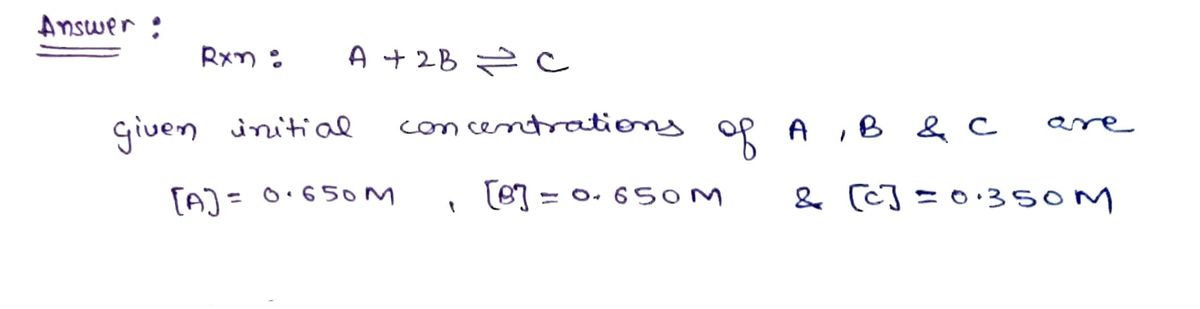 Answer :
Rxn : A + 2B ⇌ C
given initial concentrations of A , B & C are
[A] = 0.650M , [B] = 0.650M & [C] = 0.350M